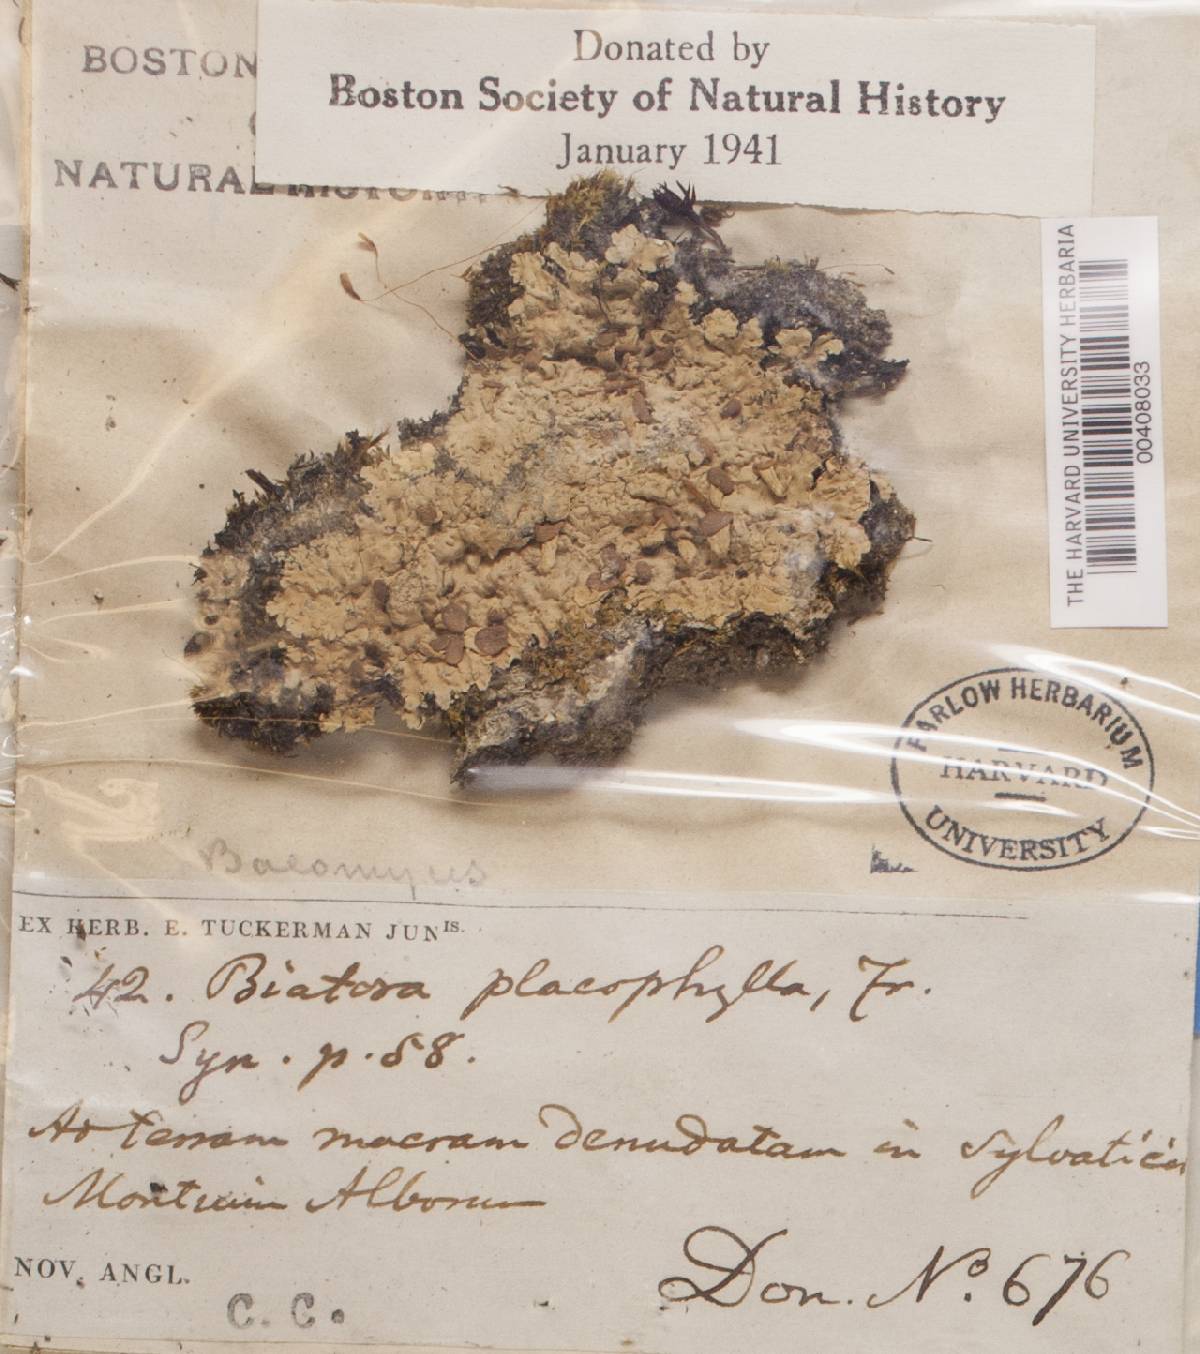 BOSTON
Donated by
Boston Society of Natural History
January 1941
NATURAL HISTORY
THE HARVARD UNIVERSITY HERBARIA
00408033
FARLOW HERBARIUM
HARVARD
UNIVERSITY
Baeomyces
EX HERB. E. TUCKERMAN JUNIS.
42. Biatora placophylla, Fr.
Syn. p. 58.
Ad terram macram denudatam in sylvaticis
Montium Alborum
NOV. ANGL.
C. C.
Don. No. 676